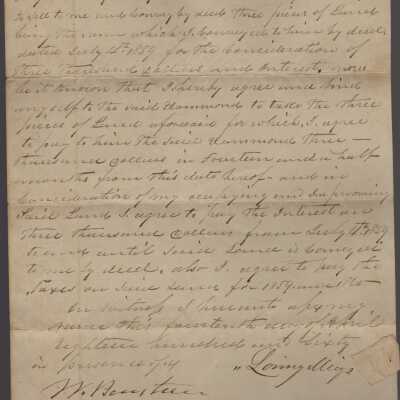 to sell to me and Convey by deed three pieces of Land
being the same which I Conveyed to him by deed
dated July 4th 1859 for the Consideration of
three thousand dollars and Interest, now
be it Known that I hereby agree and bind
myself to the said Hammond to take the three
pieces of Land aforesaid for which I agree
to pay to him the said Hammond three
thousand dollars in fourteen and a half
months from this date hereof and in
Consideration of my occupying and Improving
said Land I agree to pay the Interest on
three thousand dollars from July 4th 1859
to and until said Land is Conveyed
to me by deed. also I agree to pay the
taxes on said Land for 1859 and 1860
In witness I hereunto my
name this fourteenth day of April
eighteen hundred and Sixty
in presence of
W.